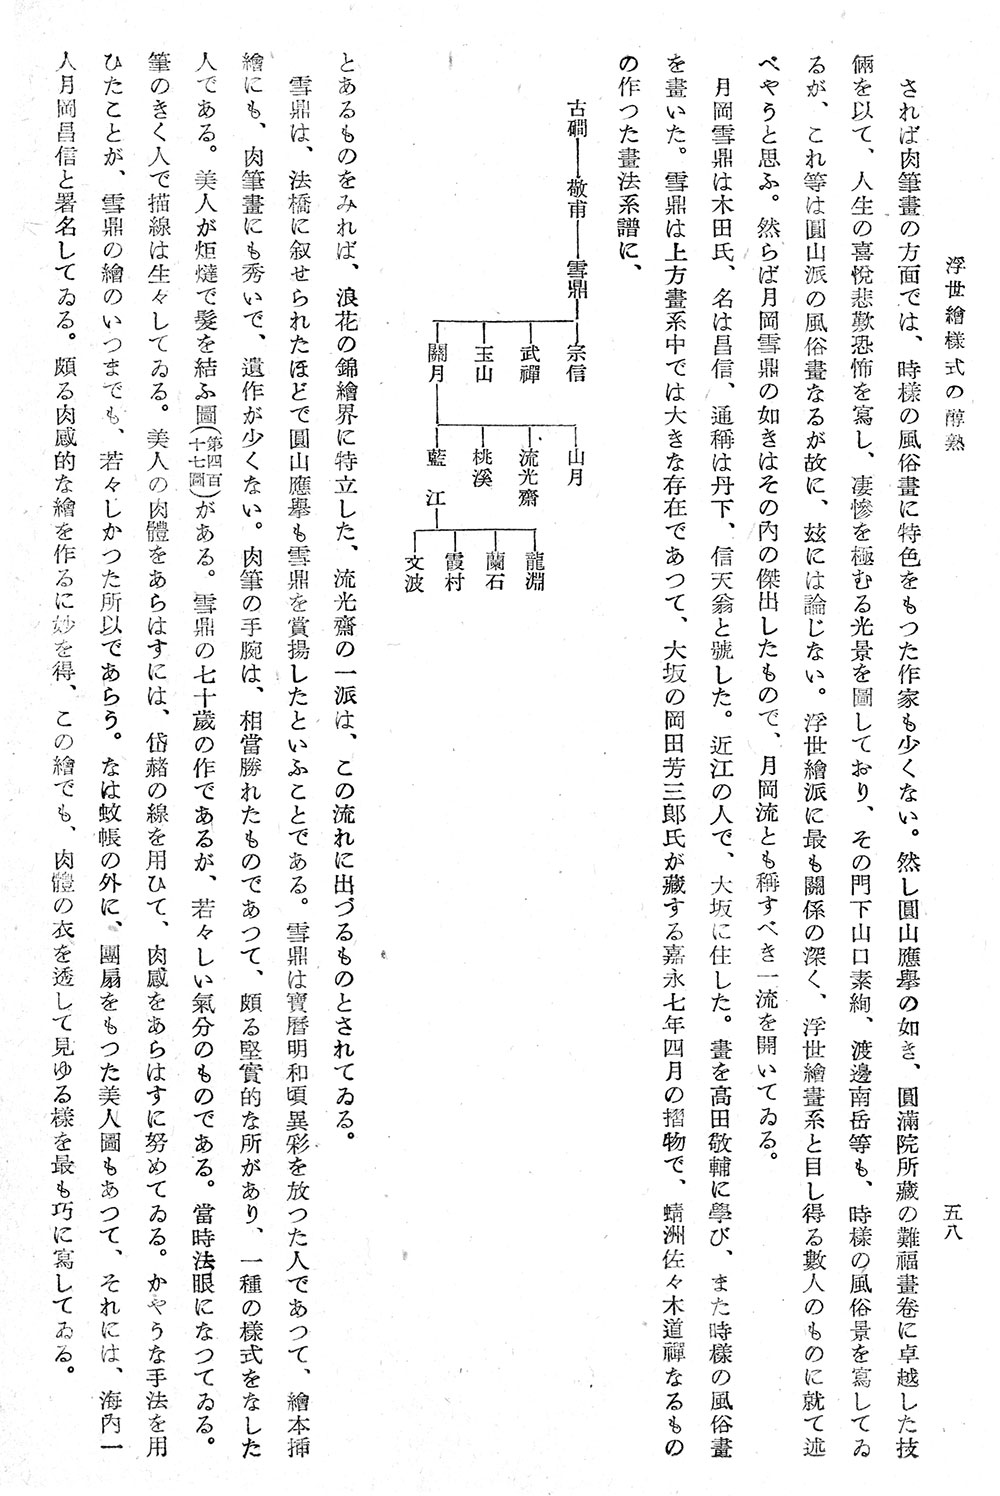 浮世繪樣式の醇熟
五八
されば肉筆畫の方面では、時樣の風俗畫に特色をもつた作家も少くない。然し圓山應擧の如き、圓滿院所藏の難福畫卷に卓越した技
倆を以て、人生の喜悅悲歎恐怖を寫し、凄慘を極むる光景を圖しており、その門下山口素絢、渡邊南岳等も、時樣の風俗景を寫してゐ
るが、これ等は圓山派の風俗畫なるが故に、玆には論じない。浮世繪派に最も關係の深く、浮世繪畫系と目し得る數人のものに就て述
べやうと思ふ。然らば月岡雪鼎の如きはその內の傑出したもので、月岡流とも稱すべき一流を開いてゐる。
月岡雪鼎は木田氏、名は昌信、通稱は丹下、信天翁と號した。近江の人で、大坂に住した。畫を高田敬輔に學び、また時樣の風俗畫
を畫いた。雪鼎は上方畫系中では大きな存在であつて、大坂の岡田芳三郎氏が藏する嘉永七年四月の摺物で、蜻洲佐々木道禪なるもの
の作つた畫法系譜に、
古礀―敬甫―雪鼎
宗信
武禪
玉山
關月
山月
流光齋
桃溪
藍江
龍淵
蘭石
霞村
文波
とあるものをみれば、浪花の錦繪界に特立した、流光齋の一派は、この流れに出づるものとされてゐる。
雪鼎は、法橋に叙せられたほどで圓山應擧も雪鼎を賞揚したといふことである。雪鼎は寶曆明和頃異彩を放つた人であつて、繪本揷
繪にも、肉筆畫にも秀いで、遺作が少くない。肉筆の手腕は、相當勝れたものであつて、頗る堅實的な所があり、一種の樣式をなした
人である。美人が炬燵で髮を結ふ圖(第四百十七圖)がある。雪鼎の七十歲の作であるが、若々しい氣分のものである。當時法眼になつてゐる。
筆のきく人で描線は生々してゐる。美人の肉體をあらはすには、岱赭の線を用ひて、肉感をあらはすに努めてゐる。かやうな手法を用
ひたことが、雪鼎の繪のいつまでも、若々しかつた所以であらう。なほ蚊帳の外に、團扇をもつた美人圖もあつて、それには、海內一
人月岡昌信と署名してゐる。頗る肉感的な繪を作るに妙を得、この繪でも、肉體の衣を透して見ゆる樣を最も巧に寫してゐる。